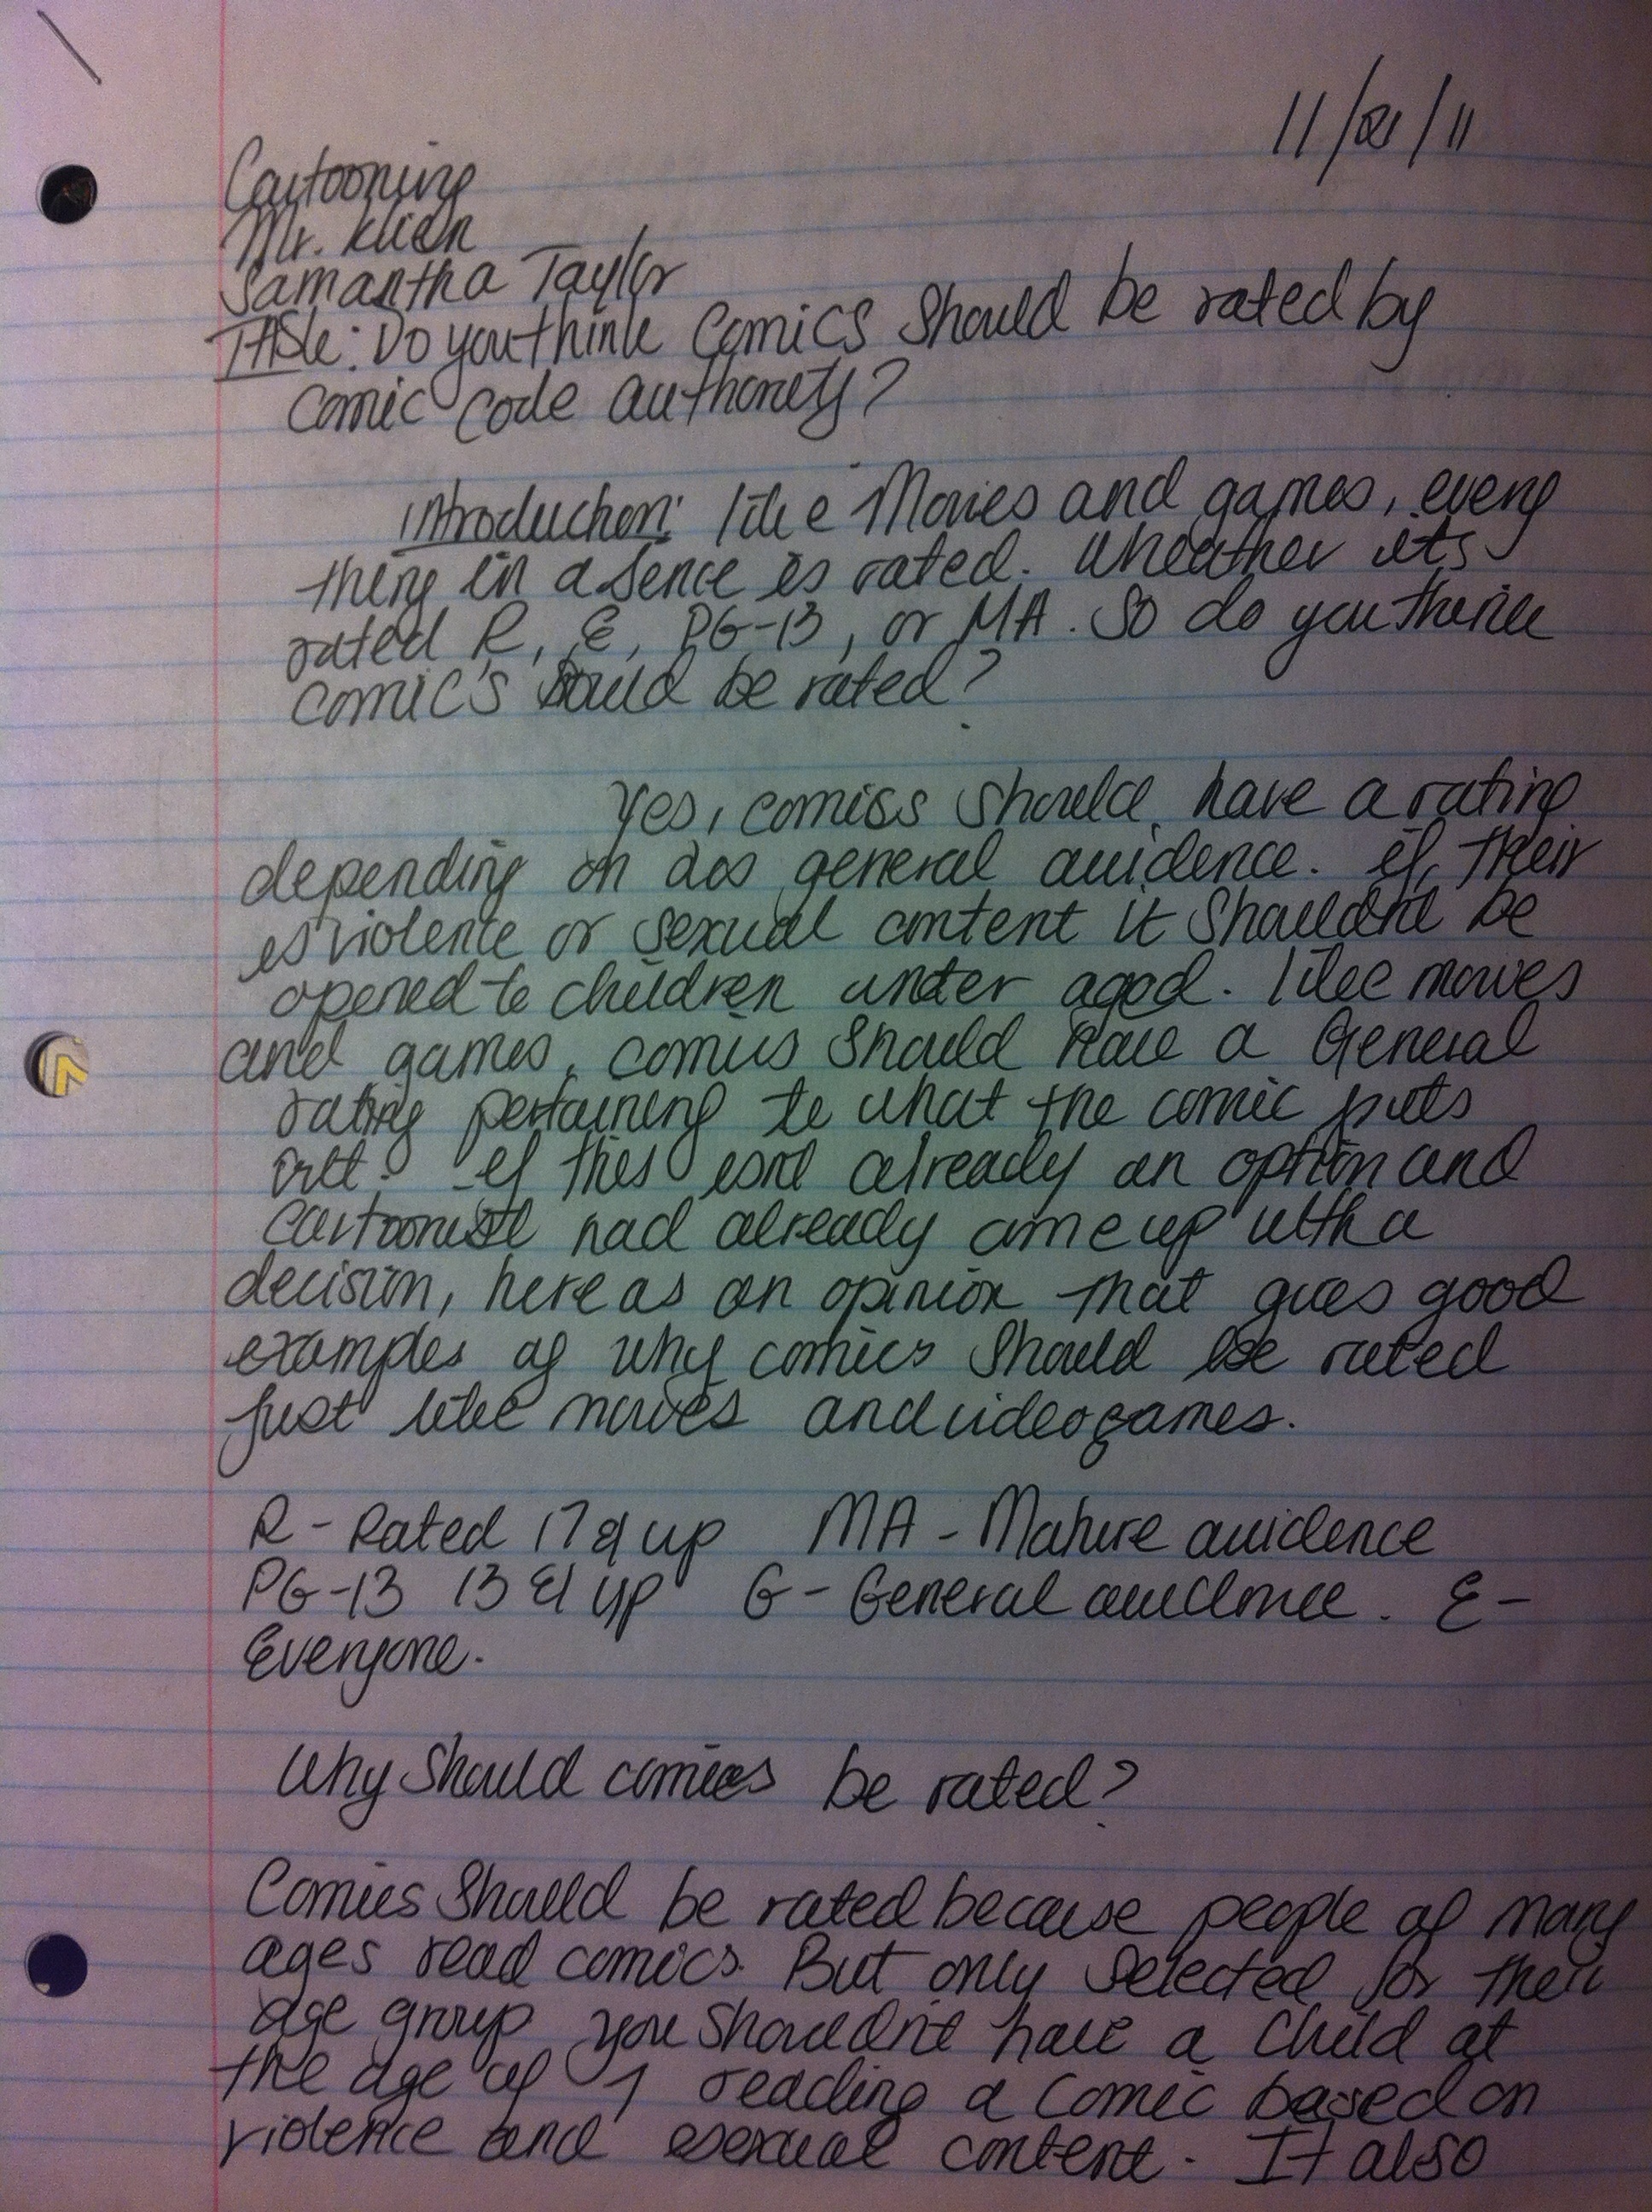 11/21/11
Cartooning
Mr. Klien
Samantha Taylor
Title: Do you think Comics Should be rated by
Comic Code Authorety?
introduction: like Movies and games, every
thing in a sence is rated. Wheather its
rated R, E, PG-13, or MA. So do you think
comic's should be rated?
Yes, comics should have a rating
depending on its general auidence. if their
is violence or sexual content it Shouldnt be
opened to children under aged. like movies
and games, comics Should have a General
rating pertaining to what the comic puts
out. if this isnt already an option and
cartoonist had already came up with a
decision, here as an opinion that gives good
examples of why comics Should be rated
just like movies and videogames.
R - Rated 17 & up MA - Mature auidence
PG-13 13 & up G - General audience. E -
Everyone.
Why Should comics be rated?
Comics Should be rated because people of many
ages read comics. But only selected for their
age group you Shouldnt have a Child at
the age of 7 reading a Comic based on
violence and sexual content. It also